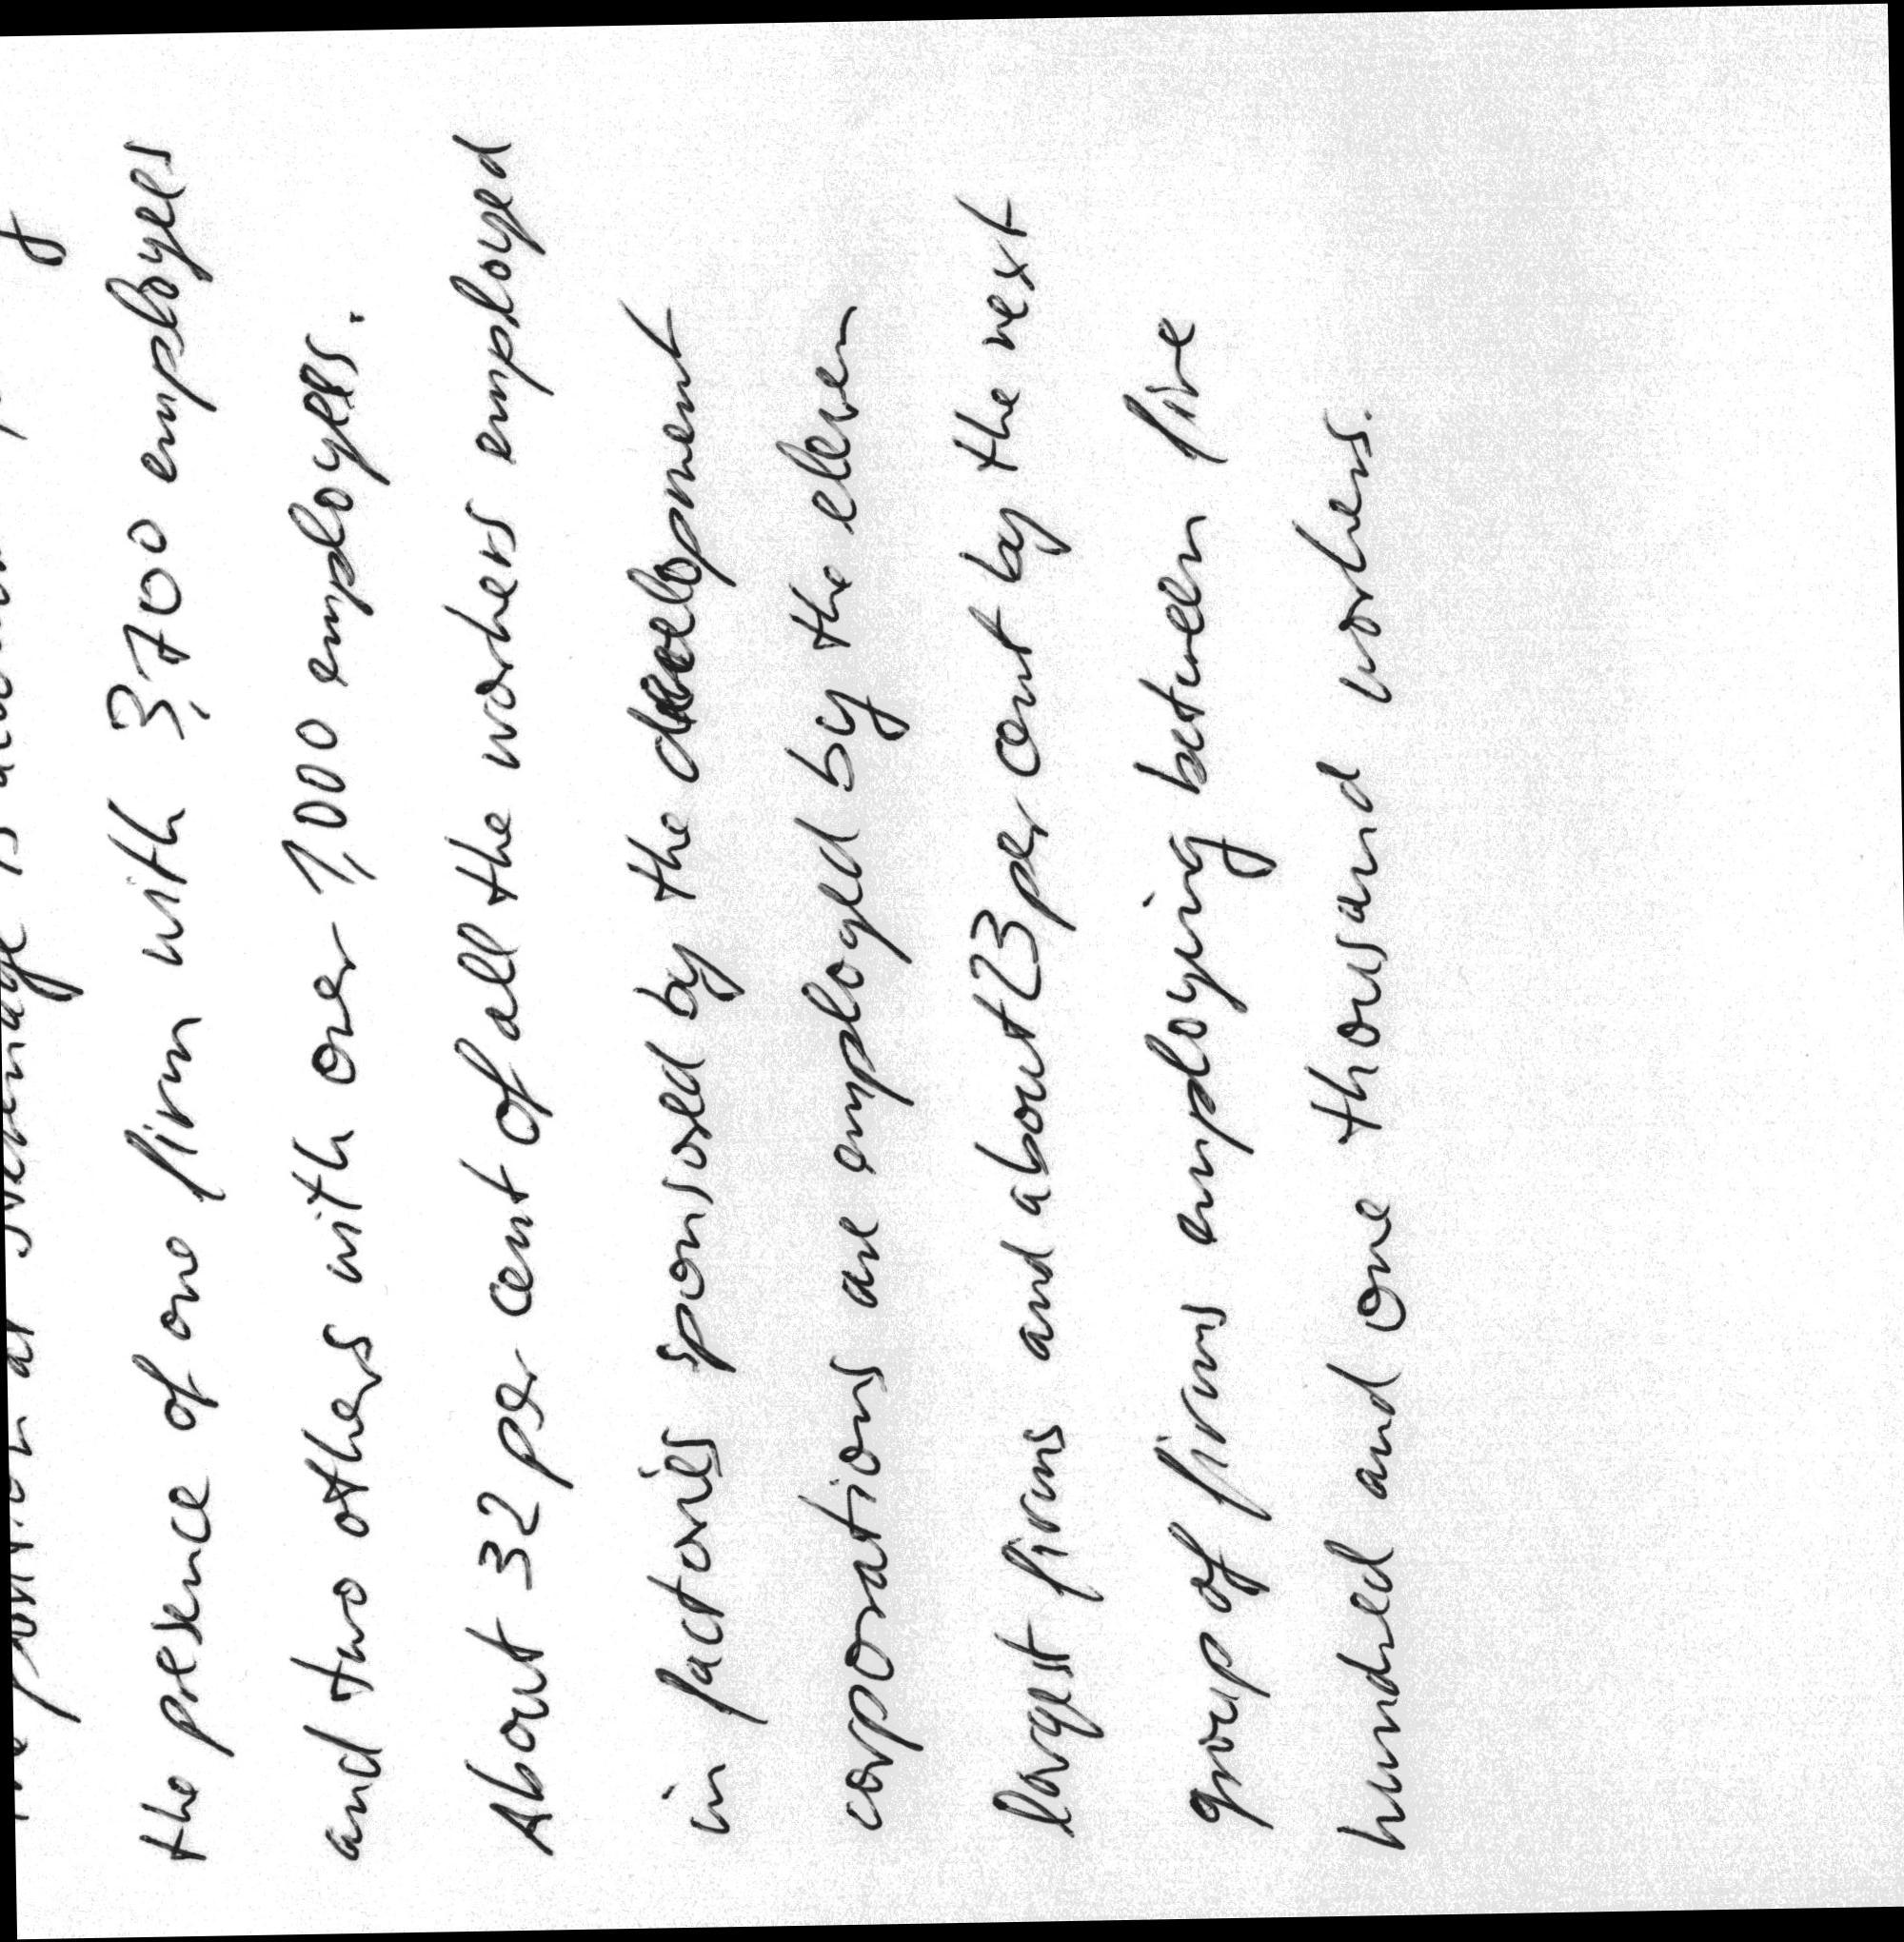 position at Stevenage is
the presence of one firm with 3,700 employees
and two others with over 1,000 employees.
About 32 per cent of all the workers employed
in factories sponsored by the development
corporations are employed by the eleven
largest firms and about 23 per cent by the next
group of firms employing between five
hundred and one thousand workers.